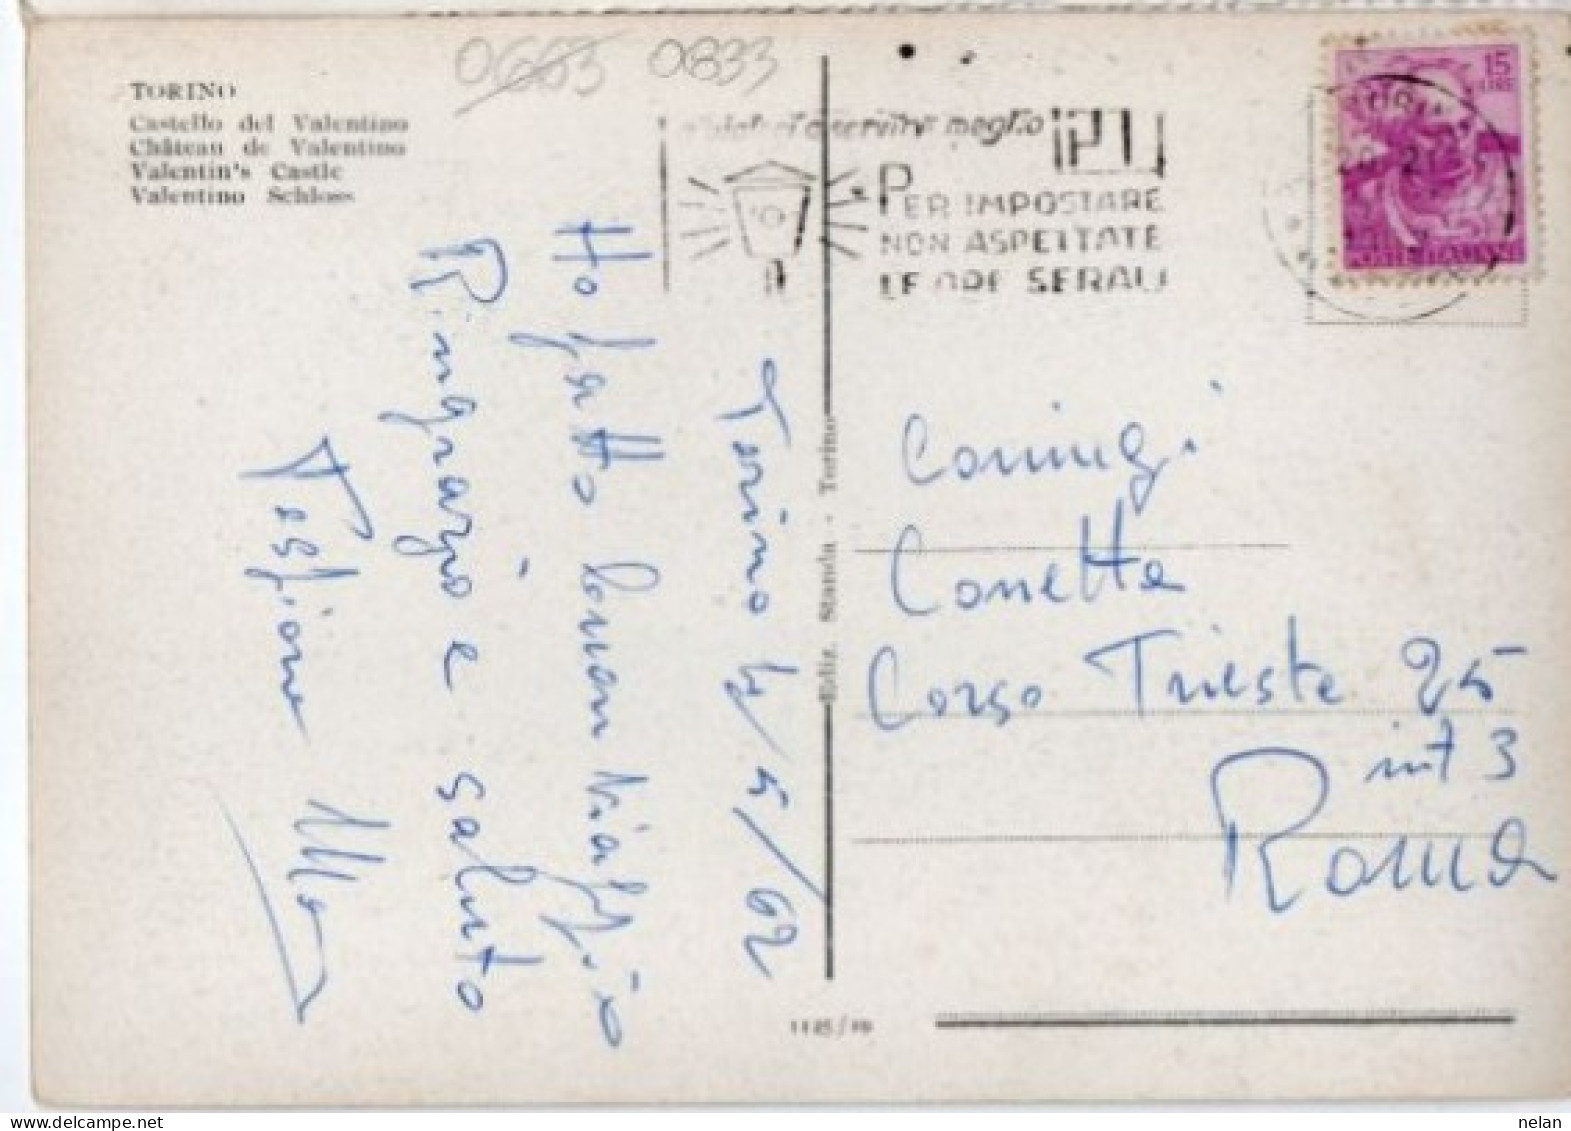 TORINO
Castello del Valentino
Château de Valentino
Valentin's Castle
Valentino Schloss
0663 0833
servire meglio
PT
PER IMPOSTARE
NON ASPETTATE
LE ORE SERALI
15
LIRE
POSTE ITALIANE
Torino 4/5/62
Ho fatto buon viaggio
Ringrazio e saluto
Ediz. Standa - Torino
Corso Trieste 25
int 3
Roma
1125/19
nelan